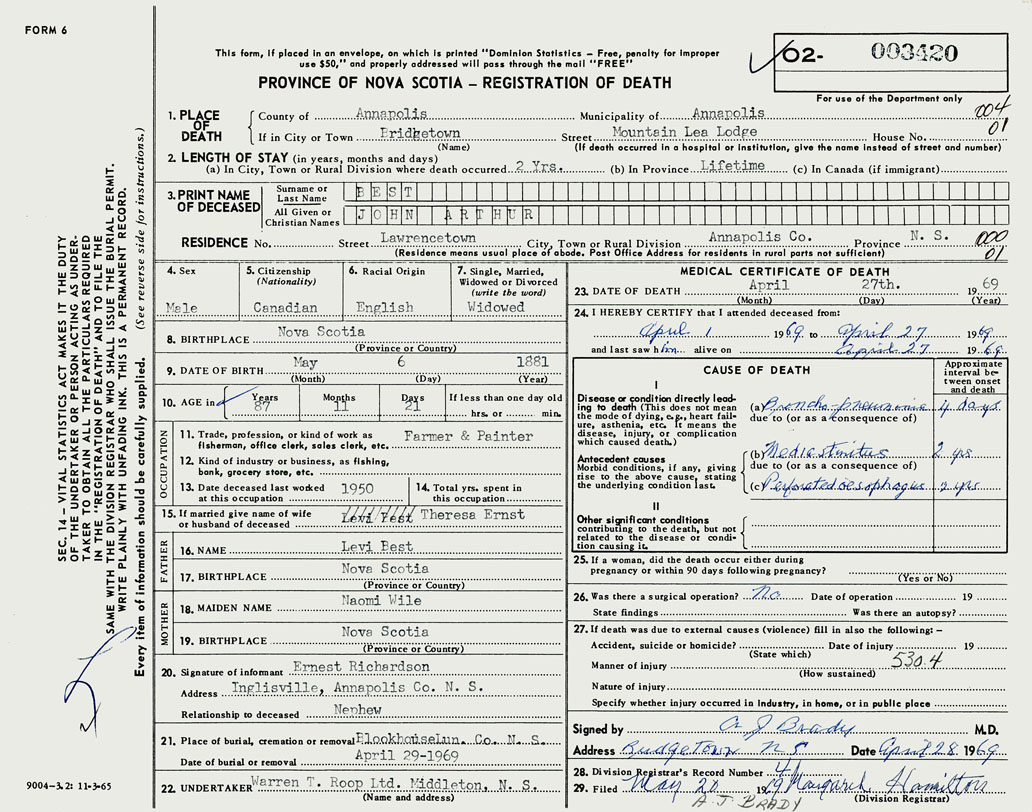 FORM 6
This form, if placed in an envelope, on which is printed "Dominion Statistics – Free, penalty for improper
use $50," and properly addressed will pass through the mail "FREE"
PROVINCE OF NOVA SCOTIA – REGISTRATION OF DEATH
02- 003420
For use of the Department only
1. PLACE OF DEATH
County of Annapolis Municipality of Annapolis 004
If in City or Town Bridgetown Street Mountain Lea Lodge House No. 01
(Name) (If death occurred in a hospital or institution, give the name instead of street and number)
2. LENGTH OF STAY (in years, months and days)
(a) In City, Town or Rural Division where death occurred 2 Yrs. (b) In Province Lifetime (c) In Canada (if immigrant)
3. PRINT NAME OF DECEASED
Surname or Last Name BEST
All Given or Christian Names JOHN ARTHUR
RESIDENCE No. Street Lawrencetown City, Town or Rural Division Annapolis Co. Province N. S. 000
(Residence means usual place of abode. Post Office Address for residents in rural parts not sufficient) 01
4. Sex Male
5. Citizenship (Nationality) Canadian
6. Racial Origin English
7. Single, Married, Widowed or Divorced (write the word) Widowed
8. BIRTHPLACE Nova Scotia
(Province or Country)
9. DATE OF BIRTH May 6 1881
(Month) (Day) (Year)
10. AGE in Years Months Days If less than one day old
87 11 21 hrs. or min.
OCCUPATION
11. Trade, profession, or kind of work as Farmer & Painter
fisherman, office clerk, sales clerk, etc.
12. Kind of industry or business, as fishing,
bank, grocery store, etc.
13. Date deceased last worked at this occupation 1950
14. Total yrs. spent in this occupation
15. If married give name of wife or husband of deceased Levi Best Theresa Ernst
FATHER
16. NAME Levi Best
17. BIRTHPLACE Nova Scotia
(Province or Country)
MOTHER
18. MAIDEN NAME Naomi Wile
19. BIRTHPLACE Nova Scotia
(Province or Country)
20. Signature of informant Ernest Richardson
Address Inglisville, Annapolis Co. N. S.
Relationship to deceased Nephew
21. Place of burial, cremation or removal BlookhouseLun. Co. N. S.
Date of burial or removal April 29-1969
22. UNDERTAKER Warren T. Roop Ltd. Middleton, N. S.
(Name and address)
MEDICAL CERTIFICATE OF DEATH
23. DATE OF DEATH April 27th. 1969
(Month) (Day) (Year)
24. I HEREBY CERTIFY that I attended deceased from:
April 1 1969 to April 27 1969
and last saw him alive on April 27 1969
CAUSE OF DEATH
Approximate interval between onset and death
I
Disease or condition directly leading to death (This does not mean the mode of dying, e.g., heart failure, asthenia, etc. It means the disease, injury, or complication which caused death.)
(a) Broncho-pneumonia 4 days
due to (or as a consequence of)
Antecedent causes
Morbid conditions, if any, giving rise to the above cause, stating the underlying condition last.
(b) Mediastinitus 2 yrs
due to (or as a consequence of)
(c) Perforated oesophagus 2 yrs
II
Other significant conditions
contributing to the death, but not related to the disease or condition causing it.
25. If a woman, did the death occur either during
pregnancy or within 90 days following pregnancy?
(Yes or No)
26. Was there a surgical operation? No Date of operation 19
State findings Was there an autopsy?
27. If death was due to external causes (violence) fill in also the following: –
Accident, suicide or homicide? Date of injury 19
(State which)
Manner of injury 530.4
(How sustained)
Nature of injury
Specify whether injury occurred in Industry, in home, or in public place
Signed by A J Brady M.D.
Address Bridgetown N S Date April 28 1969
28. Division Registrar's Record Number 41
29. Filed May 20 1969 Margaret Hamilton
(Division Registrar)
A.J. BRADY
SEC. 14 – VITAL STATISTICS ACT MAKES IT THE DUTY
OF THE UNDERTAKER OR PERSON ACTING AS UNDER-
TAKER TO OBTAIN ALL THE PARTICULARS REQUIRED
IN THE "REGISTRATION OF DEATH" AND TO FILE THE
SAME WITH THE DIVISION REGISTRAR WHO SHALL ISSUE THE BURIAL PERMIT.
WRITE PLAINLY WITH UNFADING INK. THIS IS A PERMANENT RECORD.
Every item of information should be carefully supplied. (See reverse side for instructions.)
9004-3.2: 11-3-65